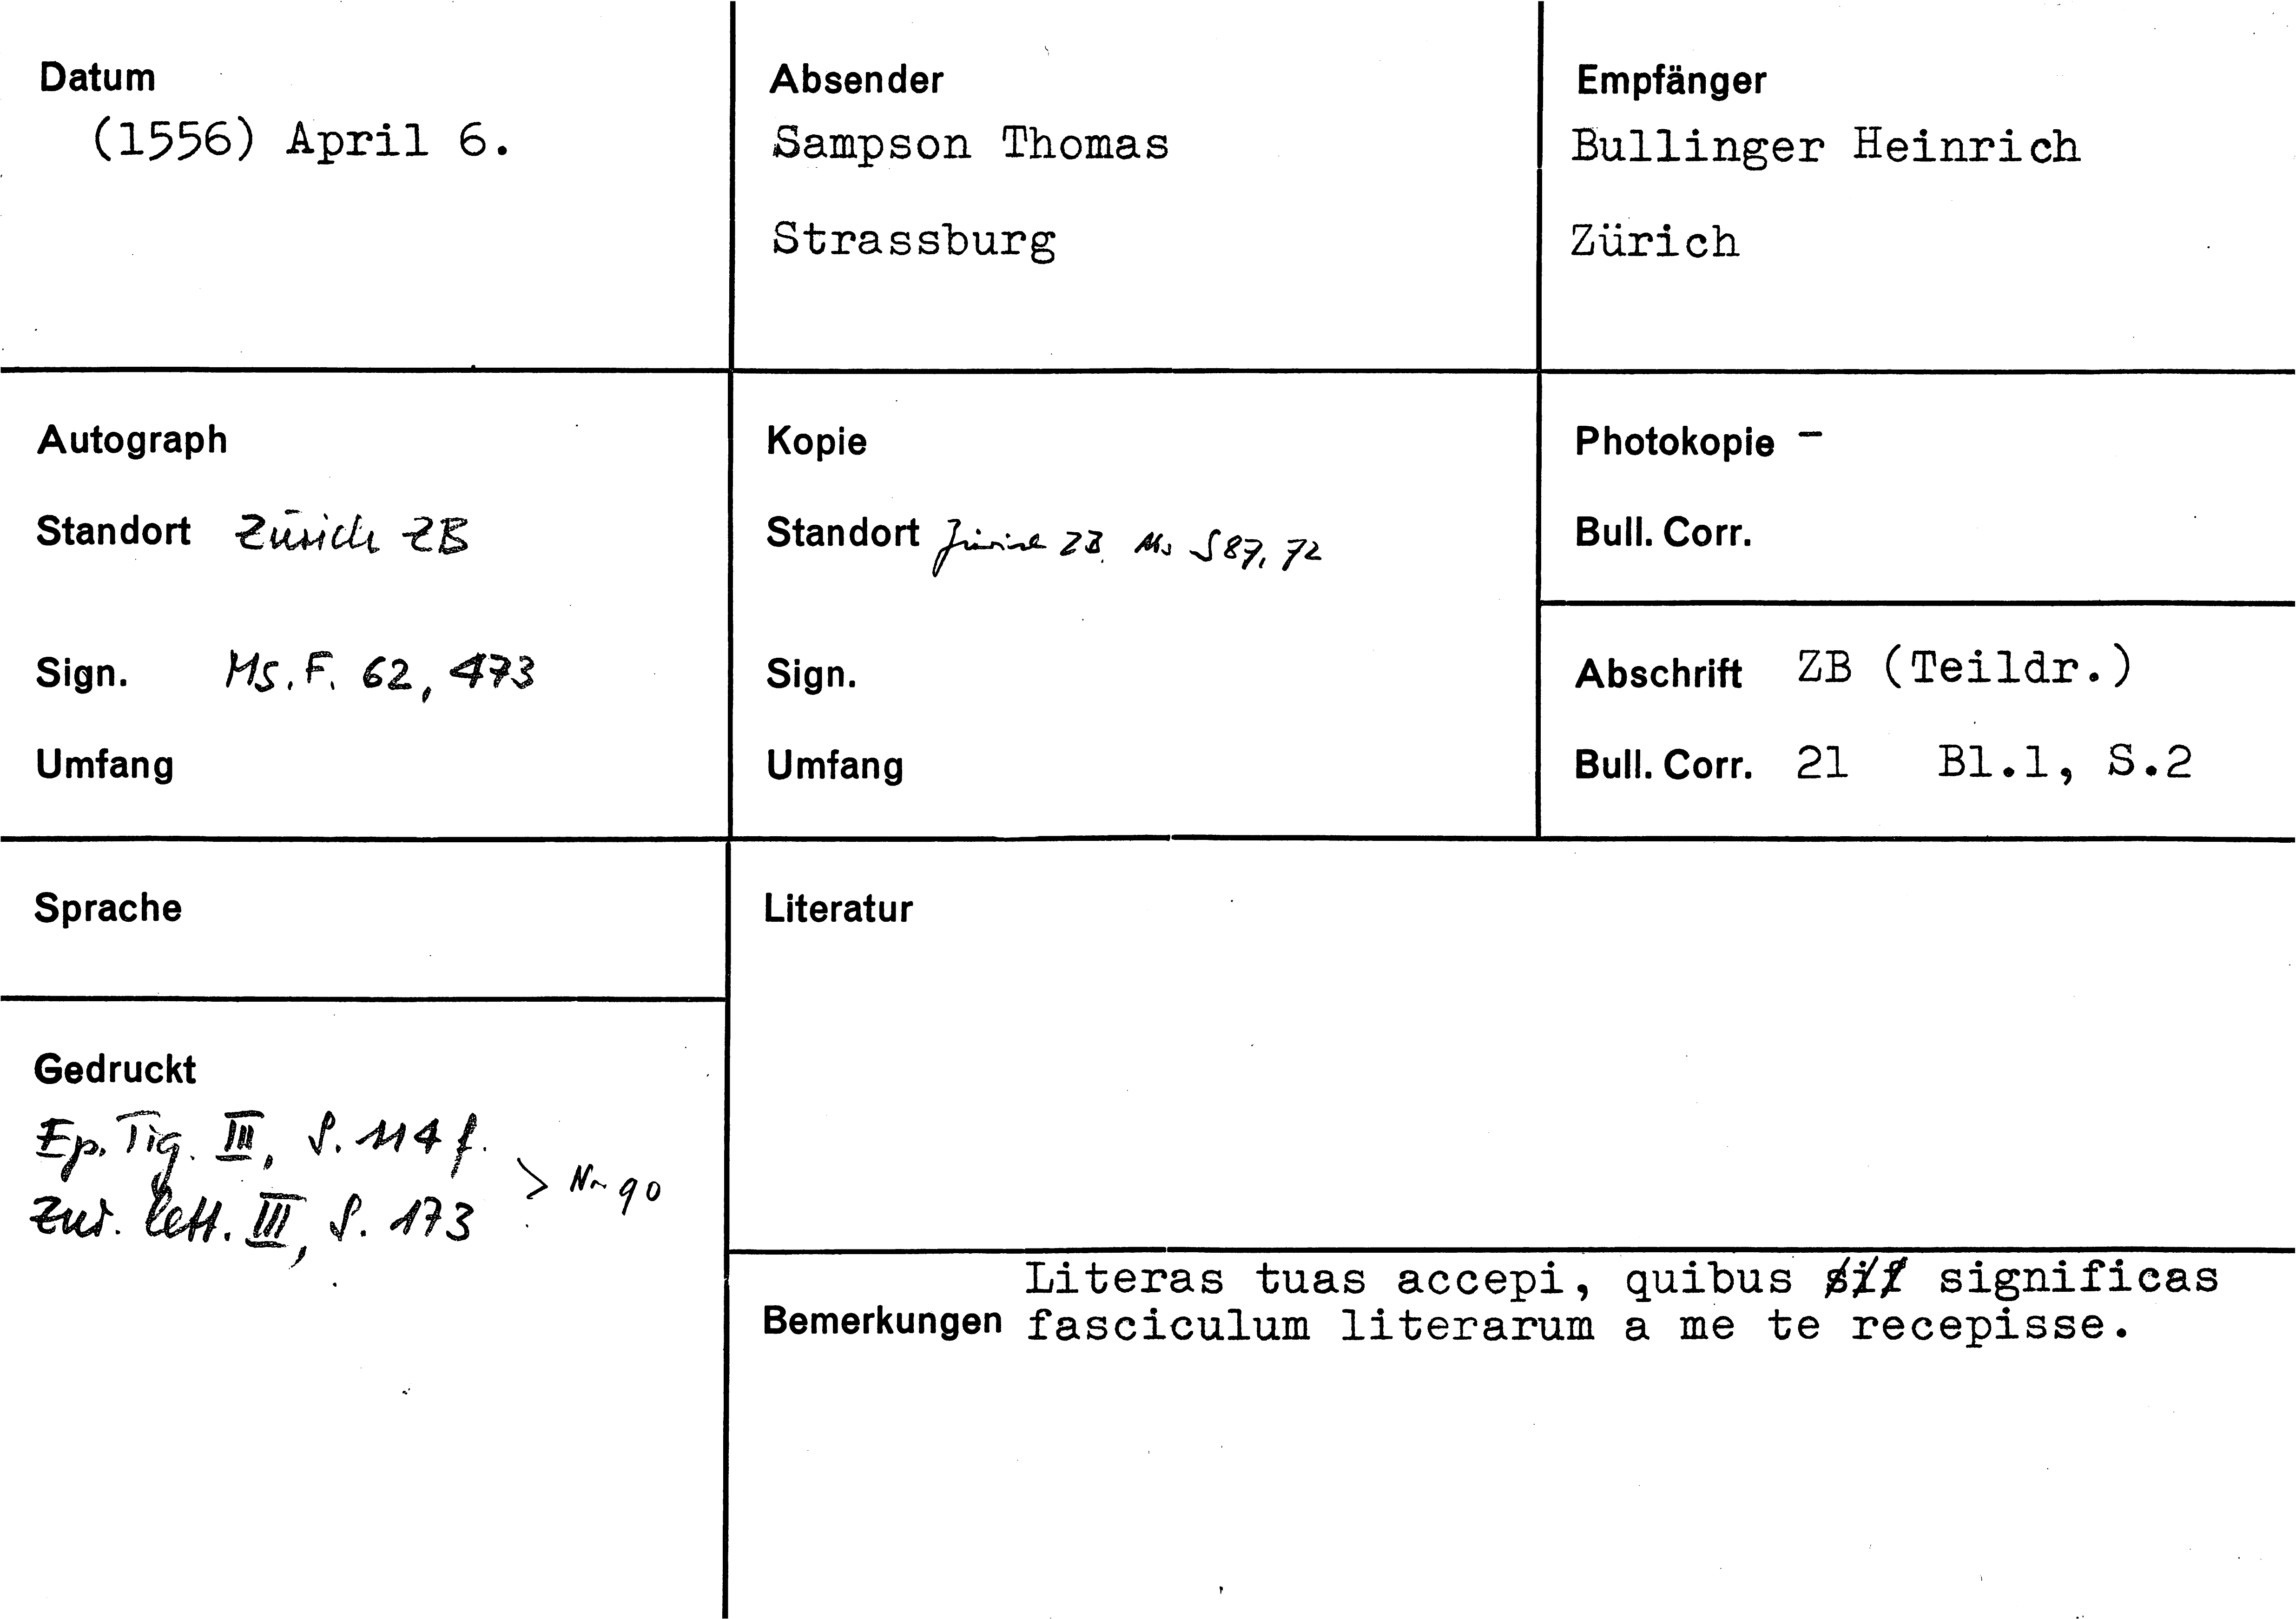 Datum
(1556) April 6.
Absender
Sampson Thomas
Strassburg
Empfänger
Bullinger Heinrich
Zürich
Autograph
Standort Zürich ZB
Sign. Ms. F. 62, 473
Umfang
Kopie
Standort Zürich ZB Ms S 87, 72
Sign.
Umfang
Photokopie –
Bull. Corr.
Abschrift ZB (Teildr.)
Bull. Corr. 21 Bl.1, S.2
Sprache
Gedruckt
Ep. Tig. III, S. 114 f.
Zur. lett. III, S. 173
> Nr 90
Literatur
Bemerkungen
Literas tuas accepi, quibus significas
fasciculum literarum a me te recepisse.